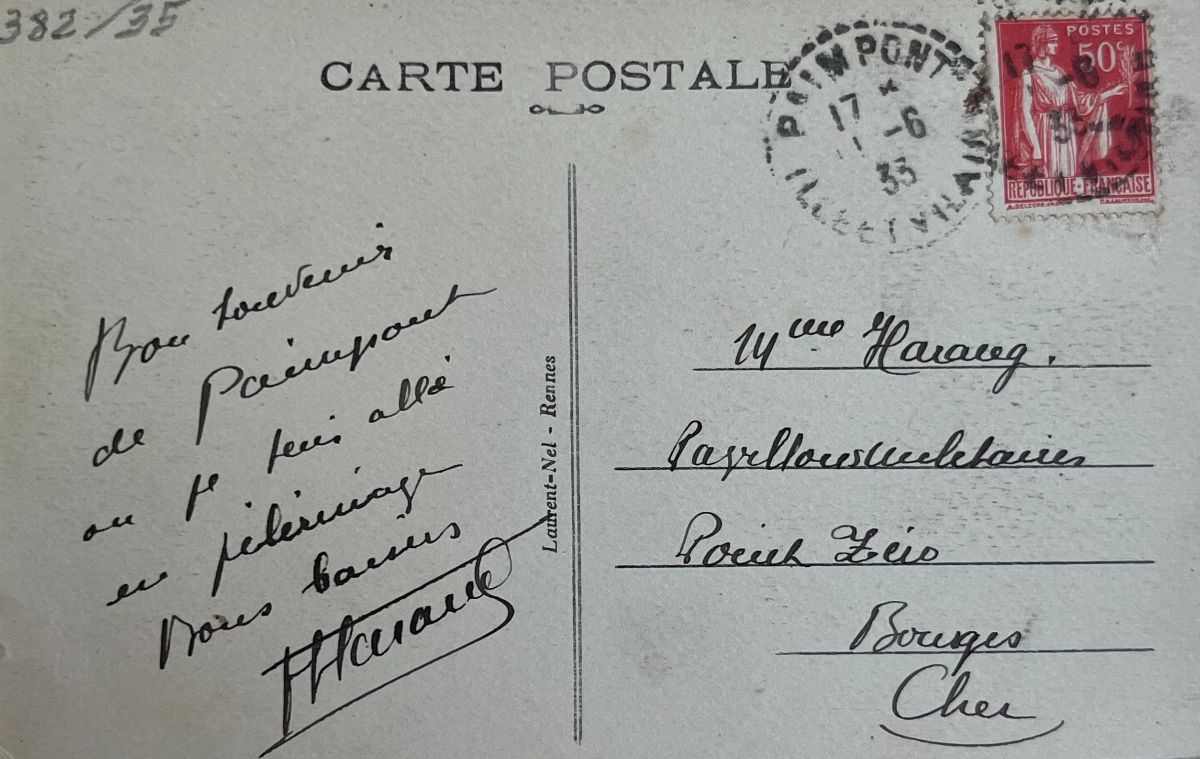 382/35
CARTE POSTALE
PAIMPONT
17 -6
33
ILLE ET VILAINE
POSTES
50c
REPUBLIQUE-FRANÇAISE
Bon souvenir
de Paimpont
ou je suis allé
en pélerinage
Bons baisers
HHarang
Laurent-Nel - Rennes
Mme Harang.
Pavillons militaires
Point Zéro
Bourges
Cher